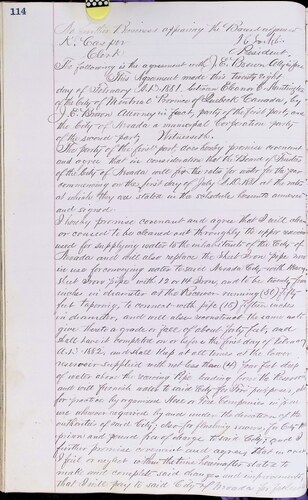 114
No further Business appearing the Board adjourned
K. Casper
Clerk
President.
The following is the agreement with J. E. Brown Atty in fact
This Agreement made this Twenty Eight
day of February A.D. 1881, between Eleanor E.
of the City of Montreal Province of Canada, by
J. E. Brown Attorney in fact, party of the first part, and
the City of Nevada a municipal Corporation party
of the second part, Witnesseth:
The party of the first part does hereby promise covenant
and agree that in consideration that the Board of Trustees
of the City of Nevada will fix the rates for water for the year
commencing on the first day of July A.D. 1881 at the rates
at which they are stated in the schedule hereunto annexed
and signed.
I hereby promise covenant and agree that I will clean
or consent to be cleaned out throughly the upper reservoir
used for supplying water to the inhabitants of the City of
Nevada and will also replace the Sheet Iron pipe now
in use for conveying water to said Nevada City with Heavy
Sheet Iron pipe with 12 or 14 Iron, and to be twenty
inches in diameter at the Reservoir running (50) fifty
feet tapering, to connect with pipe (15) fifteen inches
in diameter, and will also reconstruct the same and
give thereto a grade or fall of about forty feet, and
shall have it completed on or before the first day of
A.D. 1882, and shall keep at all times at the lower
reservoir supplied with not less than (4) four feet deep
of water above the running Pipe leading from the Reservoir
and will furnish water to said City for Fire purposes
for practice by organized Hose or Fire Companies or for
use whenever required by and under the direction of the
authorities of said City; also for flushing sewers, for City
prison and pound free of charge to said City; and I
further promise covenant and agree that in case
I fail or neglect within the time hereinafter stated to
make and complete said changes and improvements
that I will pay to said City of Nevada